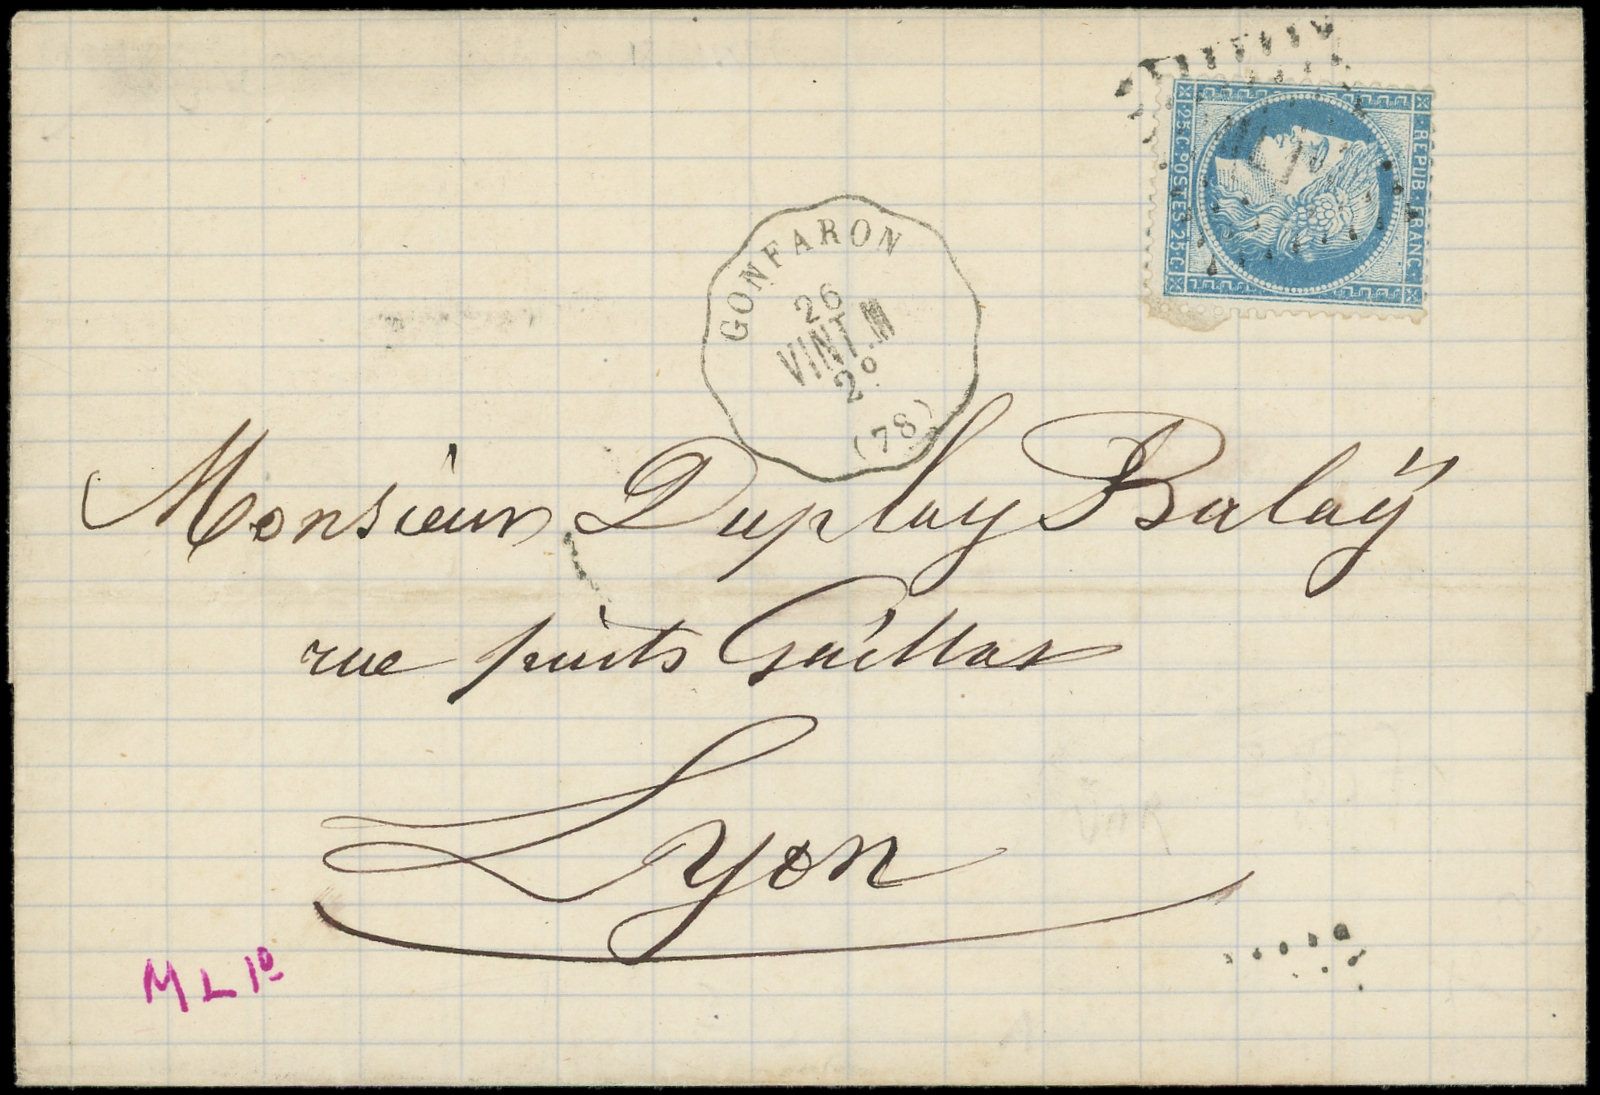 REPUB. FRANC.
25 C. POSTES. 25 C.
GONFARON
26
VINT.M
2º
(78)
Monsieur Duplay Balaÿ
rue puits Gaillot
Lyon
M L 1º